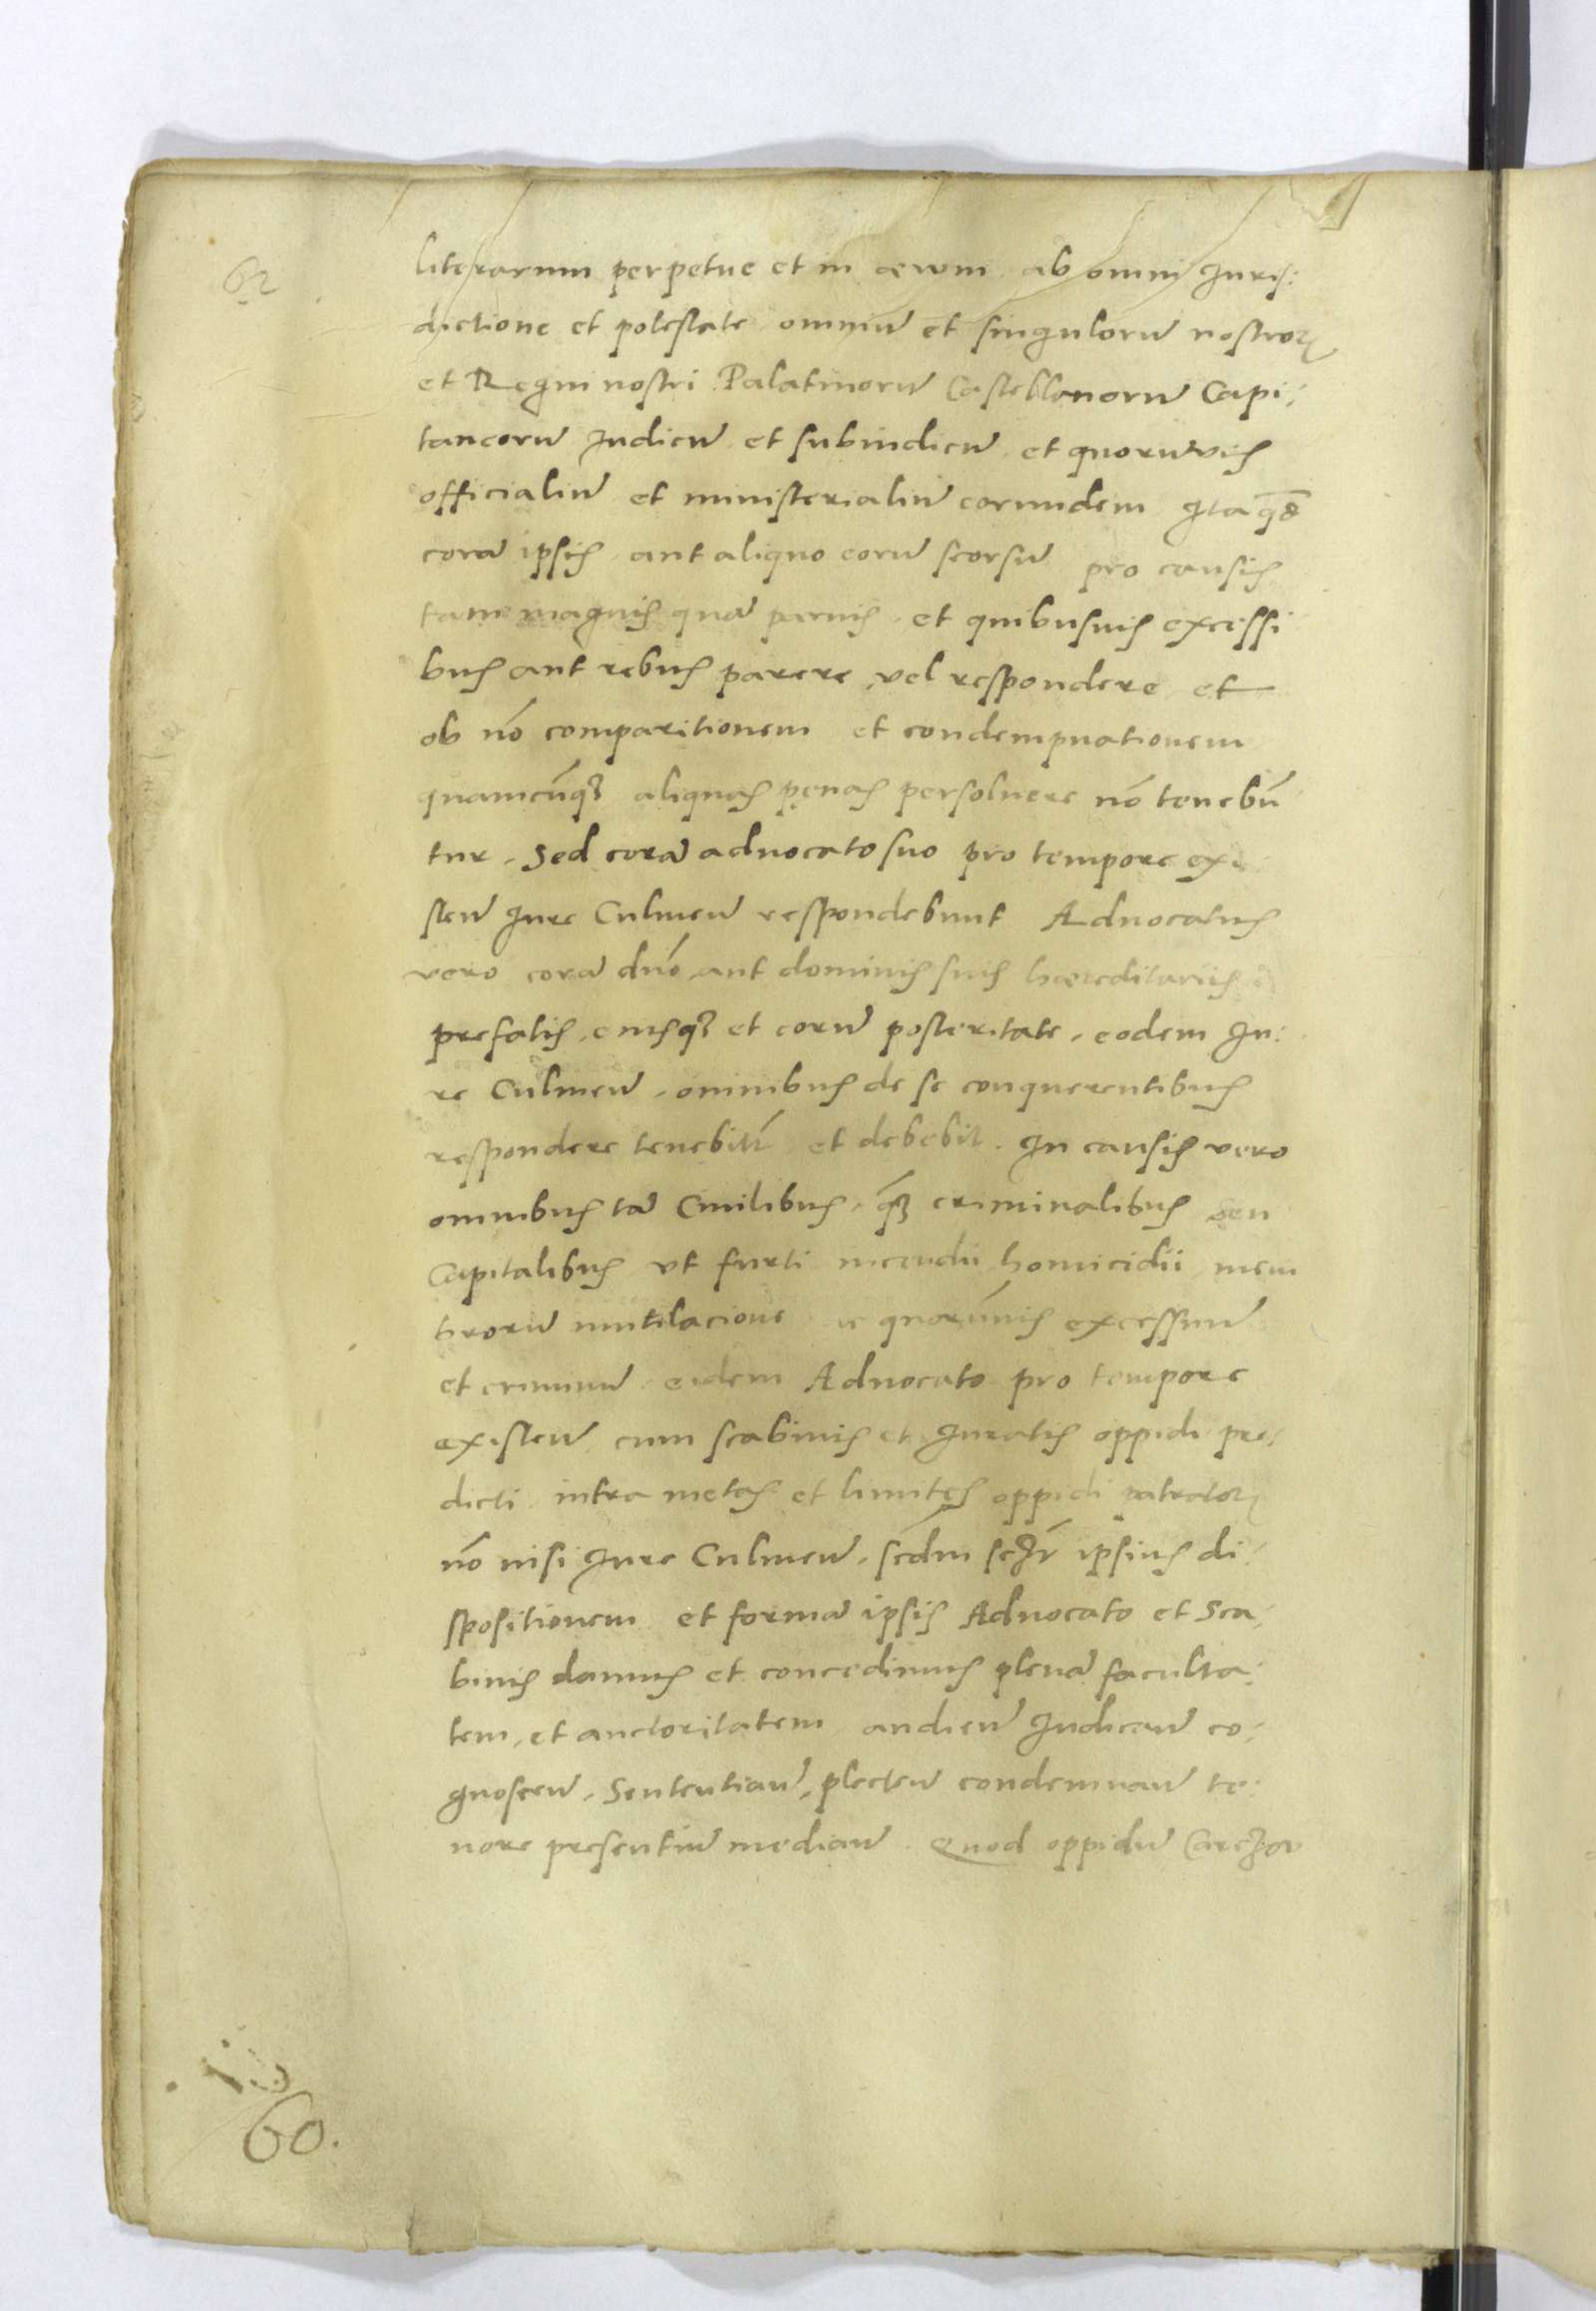 62
literarum perpetue et in aevum ab omni Juris:
dictione et potestate omniū et singulorū nostroꝝ
et Regni nostri Palatinorū Castellanorū Capi:
taneorū Judicū et subiudicū et quorūvis
officialiū et ministerialiū eorundem Ita qđ
corā ipsis aut aliquo eorū seorsū pro causis
tam magnis quā parvis et quibusuis excessi
bus aut rebus parere vel respondere et
ob nō comparitionem et condempnationem
quamcūqꝫ aliquas pęnas persoluere nō tenebū
tur. Sed corā aduocato suo pro tempore exi
steñ Jure Culmeñ respondebunt Aduocatus
vero corā dño aut dominis suis hæreditariis
prefatis, eiusqꝫ et eorū posteritate, eodem Ju:
re Culmeñ, omnibus de se conquerentibus
respondere tenebit̃ et debebit. In causis vero
omnibus tā Ciuilibus, qꝫ̃ criminalibus seu
Capitalibus vt furti incendii homicidii mem
brorū mutilacione ac quorūuis excessuū
et criminū eidem Aduocato pro tempore
existeñ cum scabinis et Juratis oppidi pre:
dicti intra metas et limites oppidi patratoꝝ
nō nisi Jure Culmeñ, scdm ipsius di:
spositionem et formā ipsis Aduocato et Sca:
binis damus et concedimus plenā faculta:
tem, et auctoritatem audieñ Judicañ co:
gnosceñ, Sententiañ, plecteñ condemnañ te:
nore presentiū mediañ. Quod oppidū
60.